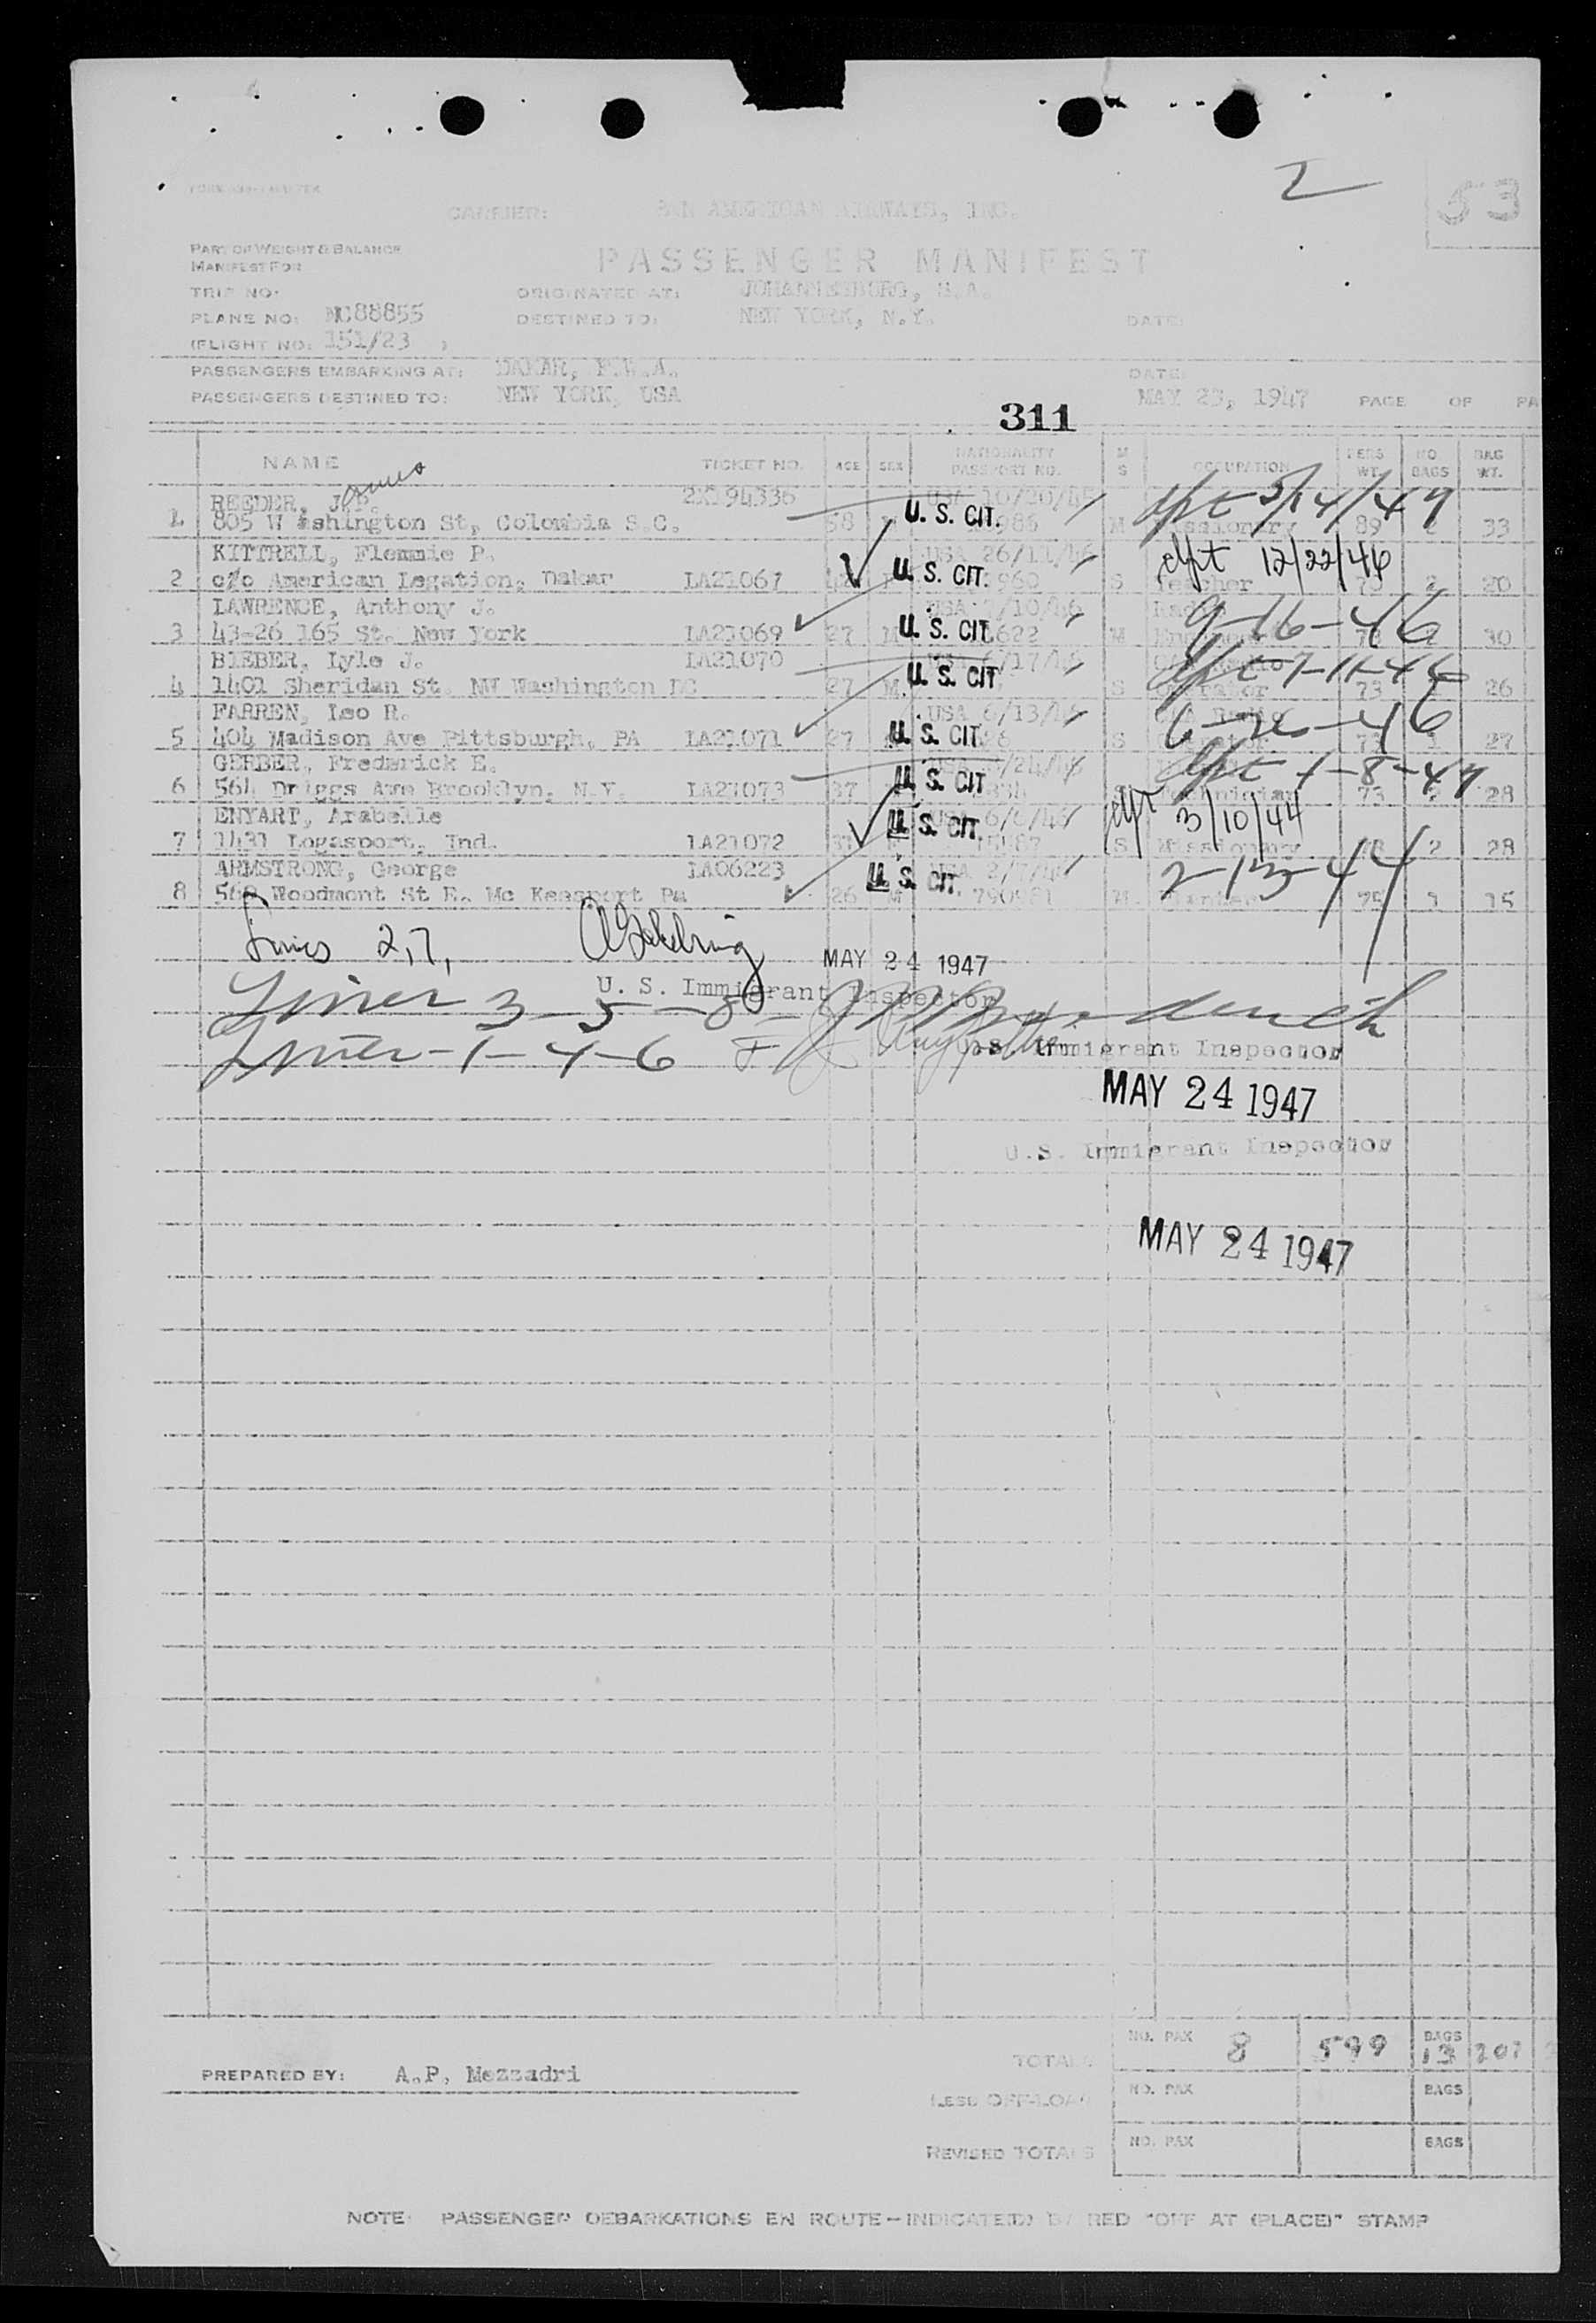 2
53
CARRIER: PAN AMERICAN AIRWAYS, INC.
PART OF WEIGHT & BALANCE
MANIFEST FOR
PASSENGER MANIFEST
TRIP NO: ORIGINATED AT: JOHANNESBURG, S.A.
PLANE NO: NC88855 DESTINED TO: NEW YORK, N.Y. DATE:
(FLIGHT NO: 151/23 )
PASSENGERS EMBARKING AT: DAKAR, F.W.A. DATE:
PASSENGERS DESTINED TO: NEW YORK, USA MAY 23, 1947 PAGE OF PA
311
NAME TICKET NO. AGE SEX NATIONALITY PASSPORT NO. M S OCCUPATION PERS WT. NO BAGS BAG WT.
James
REEDER, J.P. 2X194336 USA 10/20/45 dpt 3/14/47
1 805 W ashington St, Colombia S.C. 58 U. S. CIT. M Missionary 89 2 33
KITTRELL, Flemmie P. USA 26/11/46 dpt 12/22/46
2 c/o American Legation, Dakar LA21067 U. S. CIT. S Teacher 73 2 20
LAWRENCE, Anthony J. 9-16-46
3 43-26 165 St. New York LA21069 27 M U. S. CIT. M 30
BIEBER, Lyle J. LA21070 dpt 7-11-46
4 1401 Sheridan St. NW Washington DC 27 M. U. S. CIT S Operator 73 26
FARREN, Leo R. USA 6/13/46 6-26-46
5 404 Madison Ave Pittsburgh, PA LA21071 27 U. S. CIT. S 27
GERBER, Frederick E. dpt 1-8-47
6 564 Driggs Ave Brooklyn, N.Y. LA21073 37 U. S. CIT Technician 73 28
ENYART, Arabelle dpt 3/10/44
7 1431 Logasport, Ind. LA21072 37 U. S. CIT. S Missionary 2 28
ARMSTRONG, George LA06223 2-13-44
8 568 Woodmont St E. Mc Keesport Pa 26 M U. S. CIT. 790981 75 1 15
Lines 2,7, MAY 24 1947
U. S. Immigrant Inspector
Lines 3-5-8-
Lines-1-4-6
U.S. Immigrant Inspector
MAY 24 1947
U.S. Immigrant Inspector
MAY 24 1947
TOTALS NO. PAX 8 599 BAGS 13 207
PREPARED BY: A.P. Mezzadri
LESS OFF-LOAD NO. PAX BAGS
REVISED TOTALS NO. PAX BAGS
NOTE: PASSENGER DEBARKATIONS EN ROUTE - INDICATED BY RED "OFF AT (PLACE)" STAMP